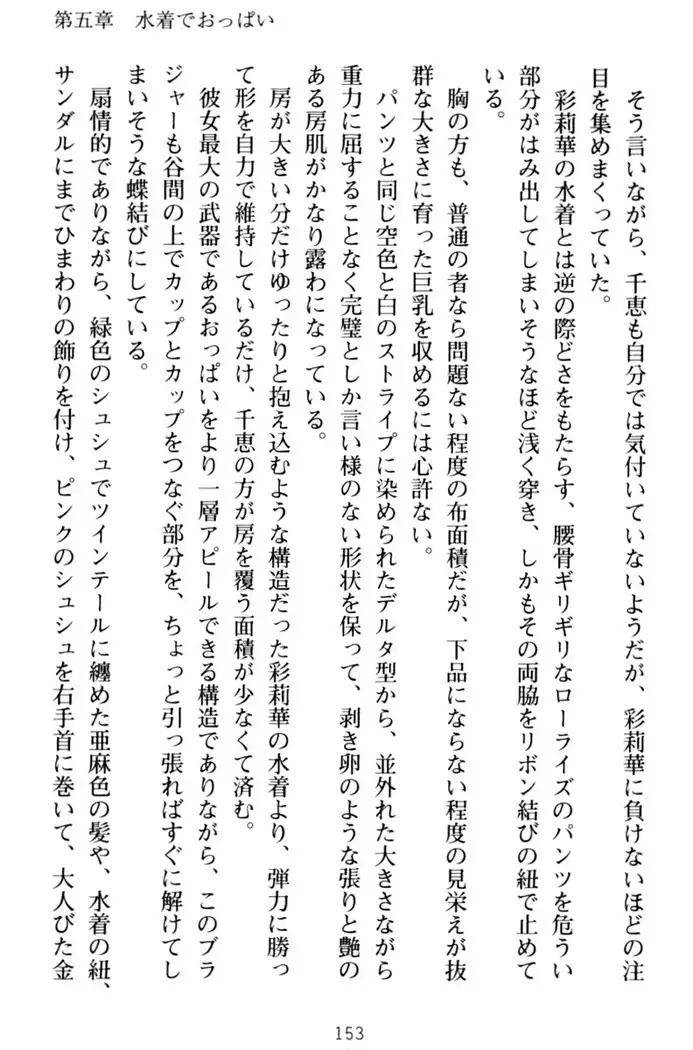 第五章　水着でおっぱい
　そう言いながら、千恵も自分では気付いていないようだが、彩莉華に負けないほどの注
目を集めまくっていた。
　彩莉華の水着とは逆の際どさをもたらす、腰骨ギリギリなローライズのパンツを危うい
部分がはみ出してしまいそうなほど浅く穿き、しかもその両脇をリボン結びの紐で止めて
いる。
　胸の方も、普通の者なら問題ない程度の布面積だが、下品にならない程度の見栄えが抜
群な大きさに育った巨乳を収めるには心許ない。
　パンツと同じ空色と白のストライプに染められたデルタ型から、並外れた大きさながら
重力に屈することなく完璧としか言い様のない形状を保って、剥き卵のような張りと艶の
ある房肌がかなり露わになっている。
　房が大きい分だけゆったりと抱え込むような構造だった彩莉華の水着より、弾力に勝っ
て形を自力で維持しているだけ、千恵の方が房を覆う面積が少なくて済む。
　彼女最大の武器であるおっぱいをより一層アピールできる構造でありながら、このブラ
ジャーも谷間の上でカップとカップをつなぐ部分を、ちょっと引っ張ればすぐに解けてし
まいそうな蝶結びにしている。
　扇情的でありながら、緑色のシュシュでツインテールに纏めた亜麻色の髪や、水着の紐、
サンダルにまでひまわりの飾りを付け、ピンクのシュシュを右手首に巻いて、大人びた金
153